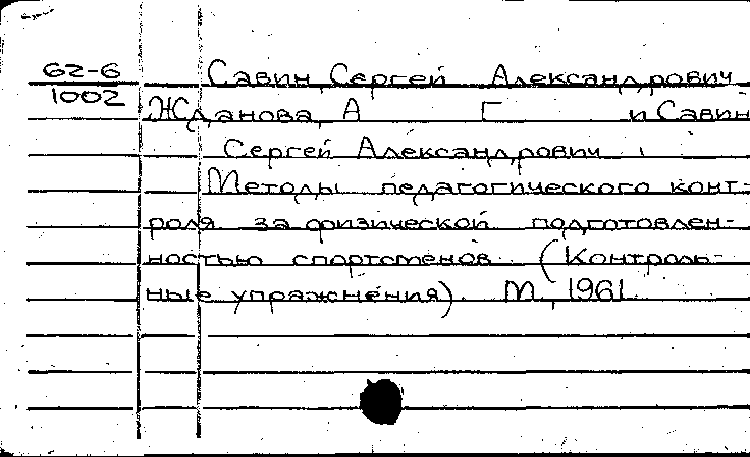 62-6
1002
Савин, Сергей Александрович
Жданова, А Г и Савин
Сергей Александрович
Методы педагогического конт-
роля за физической подготовлен-
ностью спортсменов. (Контроль-
ные упражнения). М., 1961.